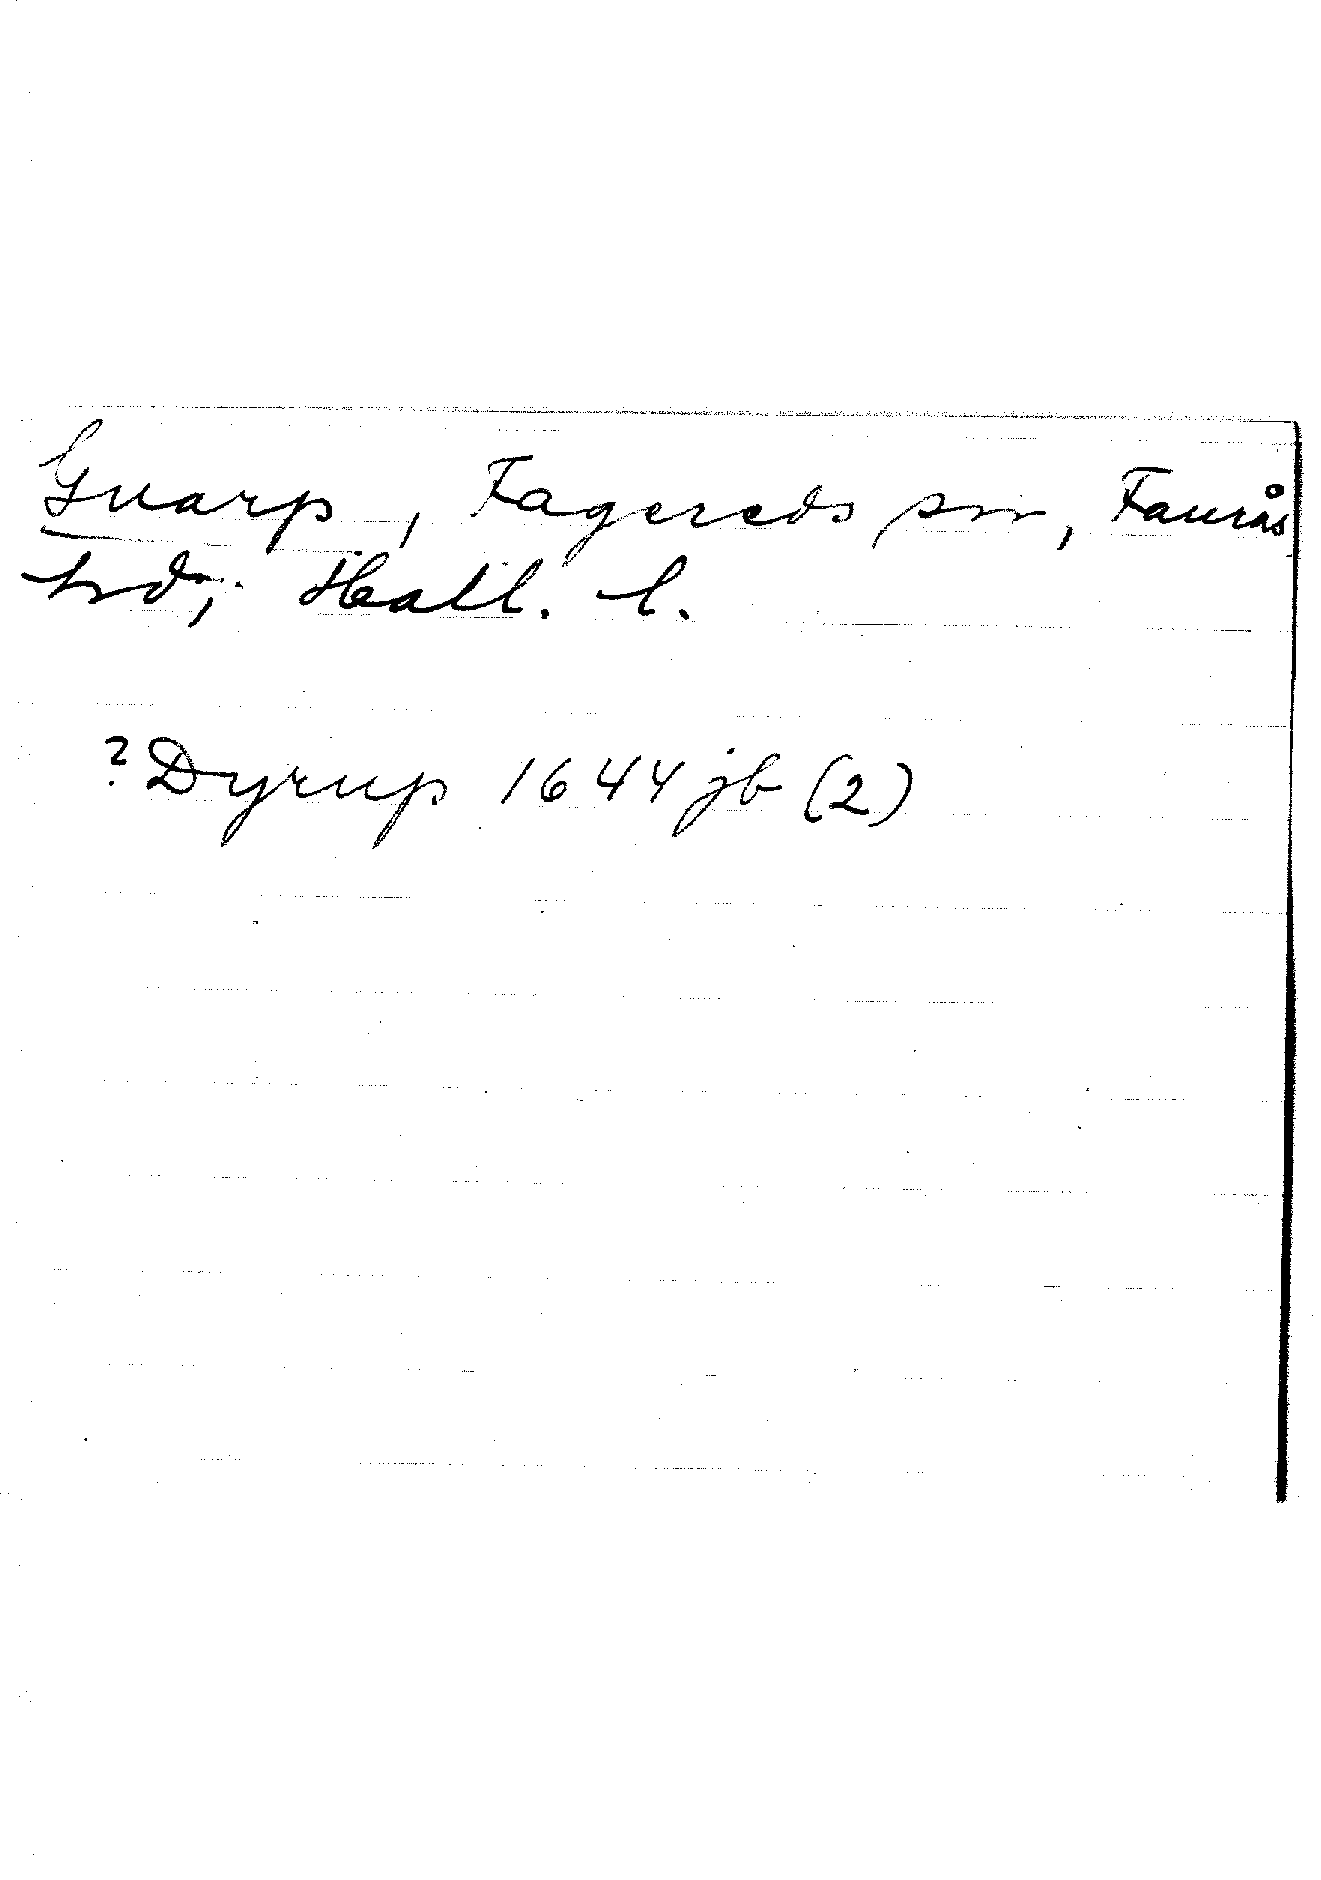 Gvarp, Fagereds sn, Faurås
hd, Hall. l.
? Dyrup 1644 jb (2)